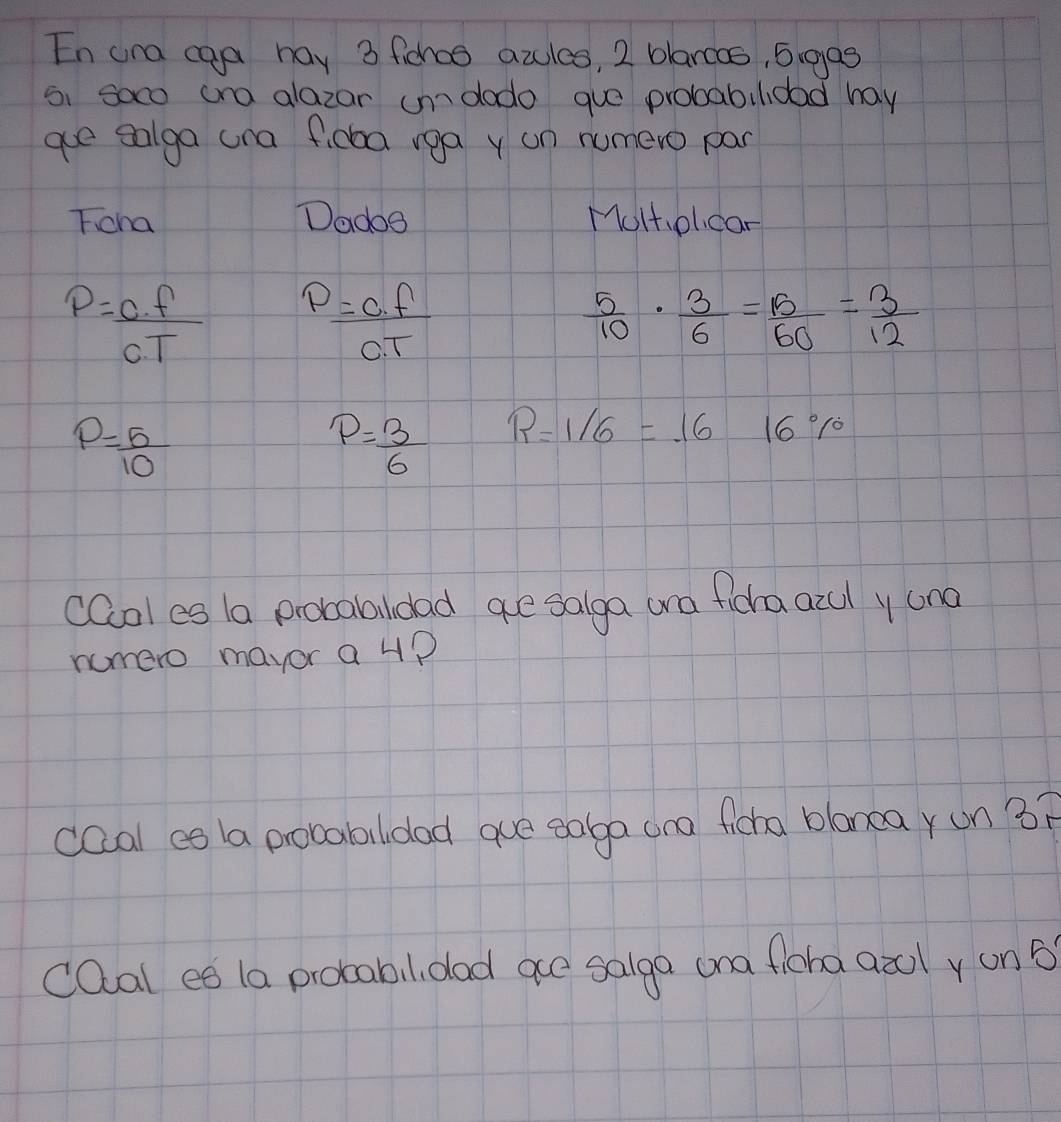 En una caja hay 3 fichas azules, 2 blancas, 5 rojas
si saco una alazar un dado que probabilidad hay
que salga una ficha roja y un numero par
Ficha Dados Multiplicar
P=c.f/c.T P=c.f/c.T 5/10 . 3/6 = 15/60 = 3/12
P=5/10 P=3/6 R=1/6 = .16 16%
¿Cual es la probabalidad que salga una ficha azul y una
numero mayor a 4?
¿Cual es la probabilidad que salga una ficha blanca y un 3?
¿Cual es la probabilidad que salga una ficha azul y un 5?